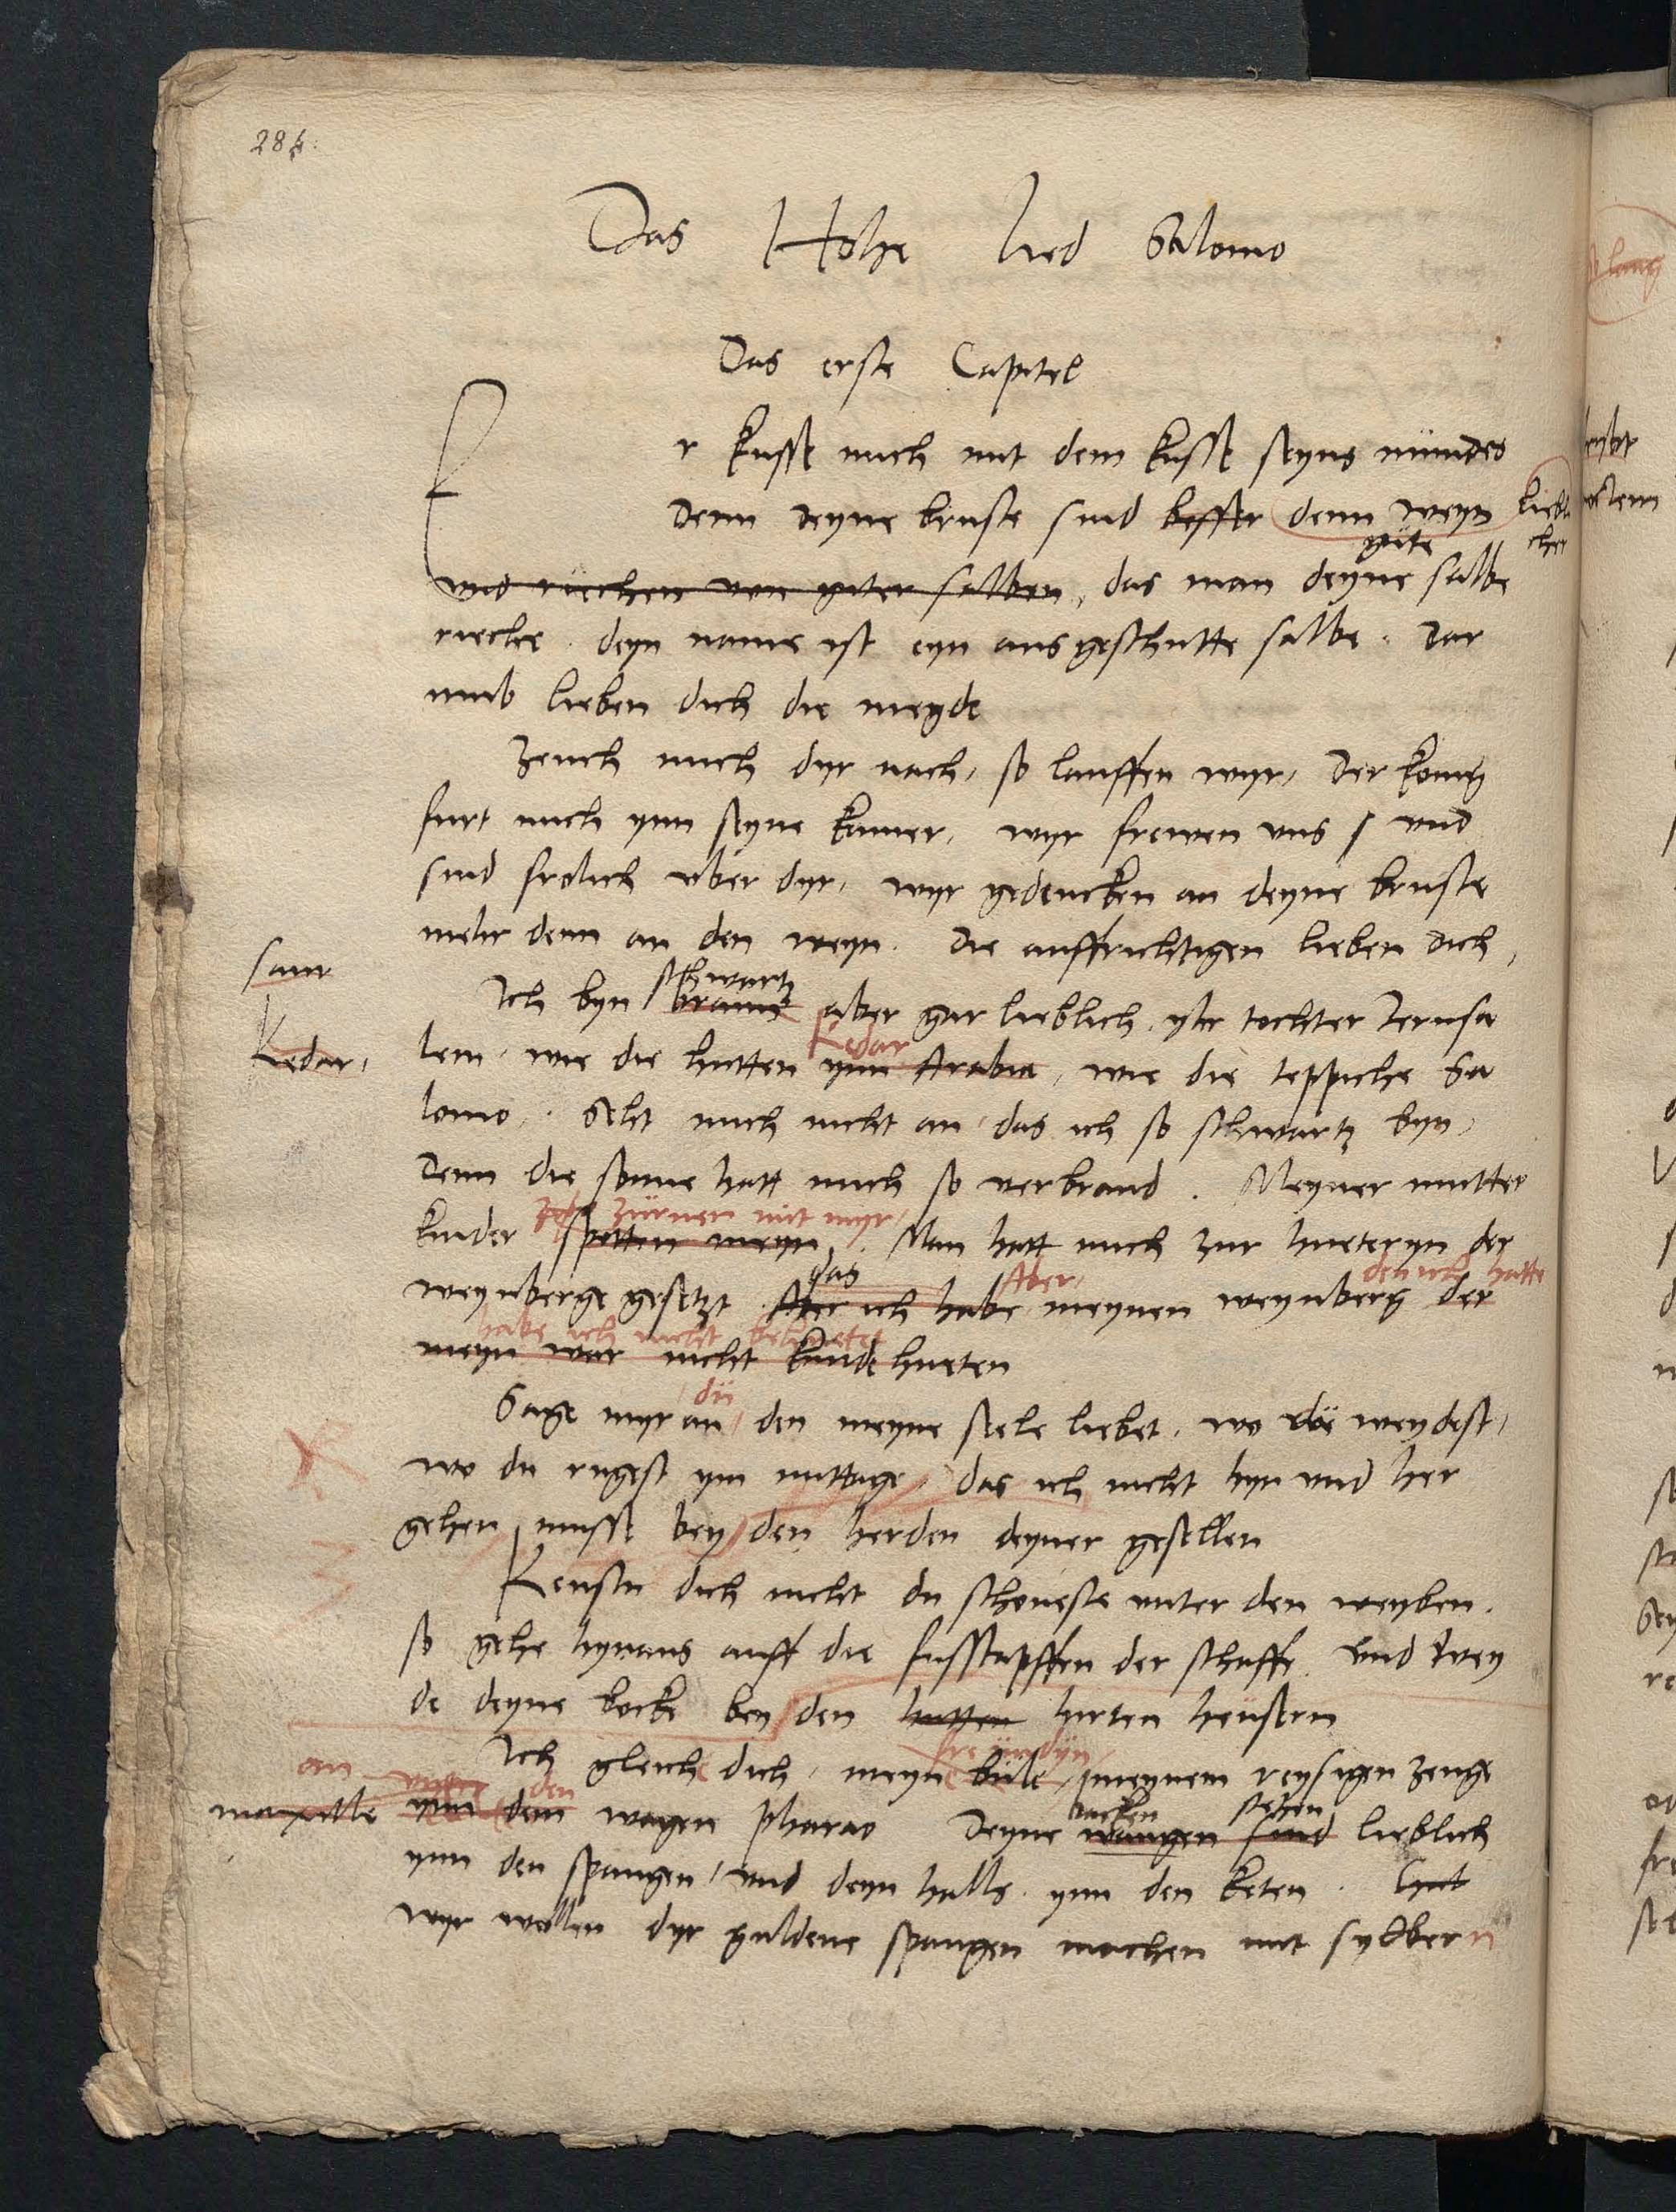 284.
Das Hohe lied Salomo
Das erste Capitel
Er kusse mich mit dem kusse seyns mundes
denn deyne bruste sind besser denn weyn liebli
cher
gute
und riechen von guter salben, das man deyne salbe
rieche. deyn name ist eyn ausgeschutte salbe. Dar
umb lieben dich die meyde
Zeuch mich dyr nach, so lauffen wyr, Der konig
furt mich ynn seyne kamer, wyr frewen uns und
sind frolich uber dyr, wyr gedencken an deyne bruste
mehr denn an den weyn. Die auffrichtigen lieben dich,
schwartz
Ich byn braun aber gar lieblich, yhr tochter Jerusa
Kedar
Kedar,
lem, wie die hutten ynn Arabia, wie die teppiche Sa
lomo, Seht mich nicht an das ich so schwartz byn,
Denn die sonne hatt mich so verbrand. Meyner mutter
zürnen mit myr,
kinder spotten meyn, Man hatt mich zur hueteryn der
das Aber den ich hatte
weynberge gesetzt Aber ich habe meynen weynberg der
habe ich nicht behuetet
meyn war nicht kunde hueten
du
Sage myr an, den meyne seele liebet, wo du weydest,
wo du rugest ym mittage, das ich nicht hyn und her
gehen musse bey den herden deyner gesellen
Kenstu dich nicht du schoneste unter den weyben.
so gehe hynaus auff die fusstapffen der schaffe, und wey
de deyne bocke bey den hutten hirten heusern
freundyn,
Ich gleiche dich, meyn bule, meynem reysigen zeuge
an den
backen stehen
maxille ynn dem wagen Pharao Deyne wangen sind lieblich
ynn den spangen, und deyn halls ynn den keten.
wyr wollen dyr guldene spangen machen mit sylbern